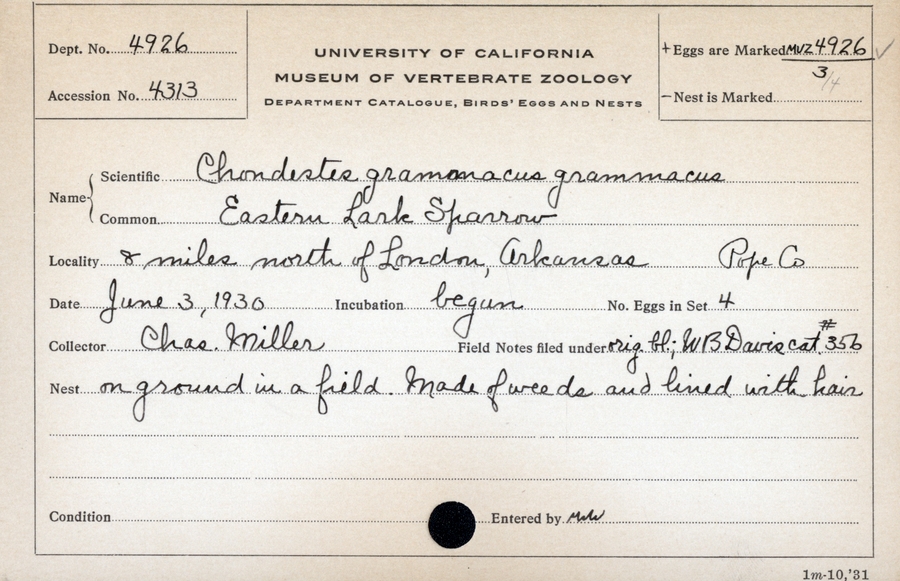 Dept. No. 4926
Accession No. 4313
UNIVERSITY OF CALIFORNIA
MUSEUM OF VERTEBRATE ZOOLOGY
DEPARTMENT CATALOGUE, BIRDS' EGGS AND NESTS
+Eggs are Marked MVZ 4926 ✓
3 /4
—Nest is Marked
Name { Scientific Chondestes grammacus grammacus
Common Eastern Lark Sparrow
Locality 8 miles north of London, Arkansas Pope Co
Date June 3, 1930 Incubation begun No. Eggs in Set 4
Collector Chas. Miller Field Notes filed under orig. bl.; WB Davis cat. # 356
Nest on ground in a field. Made of weeds and lined with hair
Condition Entered by
1m-10,'31